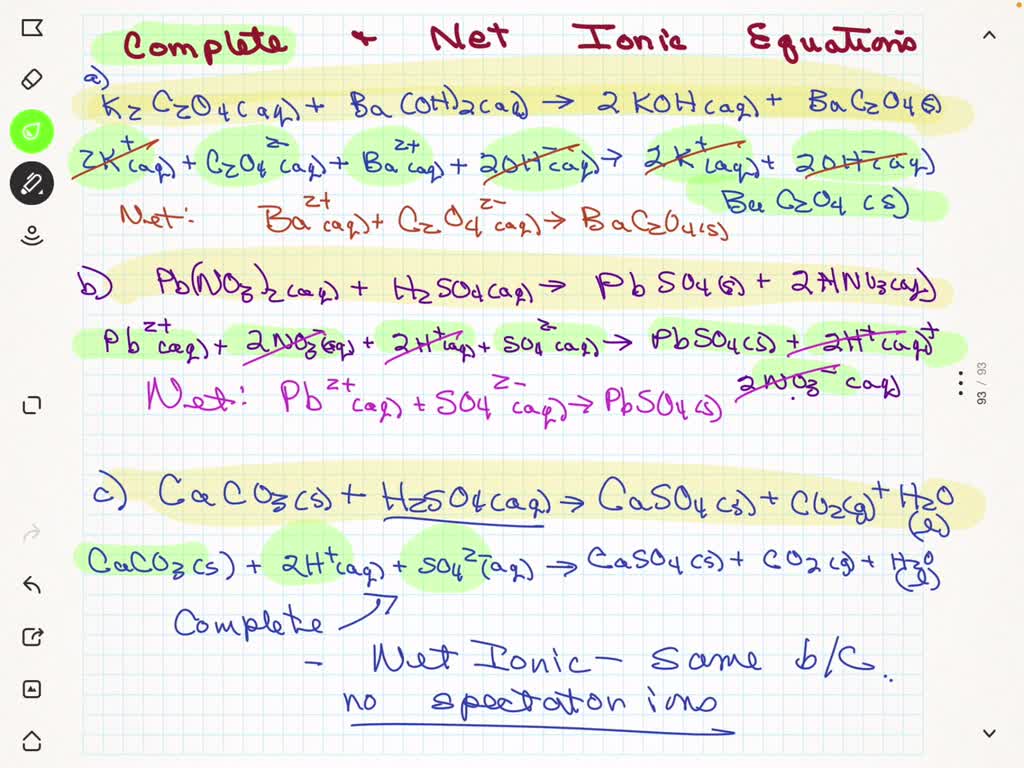 Complete + Net Ionic Equations
a)
K2C2O4(aq) + Ba(OH)2(aq) → 2KOH(aq) + BaC2O4(s)
2K⁺(aq) + C2O4²⁻(aq) + Ba²⁺(aq) + 2OH⁻(aq) → 2K⁺(aq) + 2OH⁻(aq)
BaC2O4(s)
Net: Ba²⁺(aq) + C2O4²⁻(aq) → BaC2O4(s)
b) Pb(NO3)2(aq) + H2SO4(aq) → PbSO4(s) + 2HNO3(aq)
Pb²⁺(aq) + 2NO3⁻(aq) + 2H⁺(aq) + SO4²⁻(aq) → PbSO4(s) + 2H⁺(aq) +
2NO3⁻(aq)
Net: Pb²⁺(aq) + SO4²⁻(aq) → PbSO4(s)
93 / 93
c) CaCO3(s) + H2SO4(aq) → CaSO4(s) + CO2(g) + H2O(l)
CaCO3(s) + 2H⁺(aq) + SO4²⁻(aq) → CaSO4(s) + CO2(g) + H2O(l)
Complete
- Net Ionic - same b/c..
no spectator ions